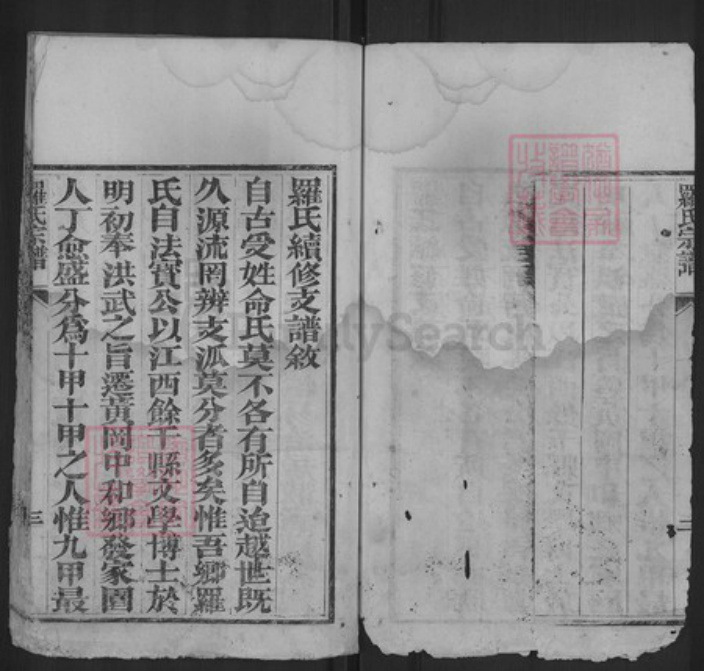 羅氏宗譜
二
羅氏續修支譜敘
自古受姓命氏莫不各有所自迨越世既
久源流罔辨支派莫分者多矣惟吾鄉羅
氏自法寶公以江西餘干縣文學博士於
明初奉洪武之旨遷黃岡中和鄉發家圖
人丁愈盛分為十甲十甲之人惟九甲最
羅氏宗譜
三
FamilySearch